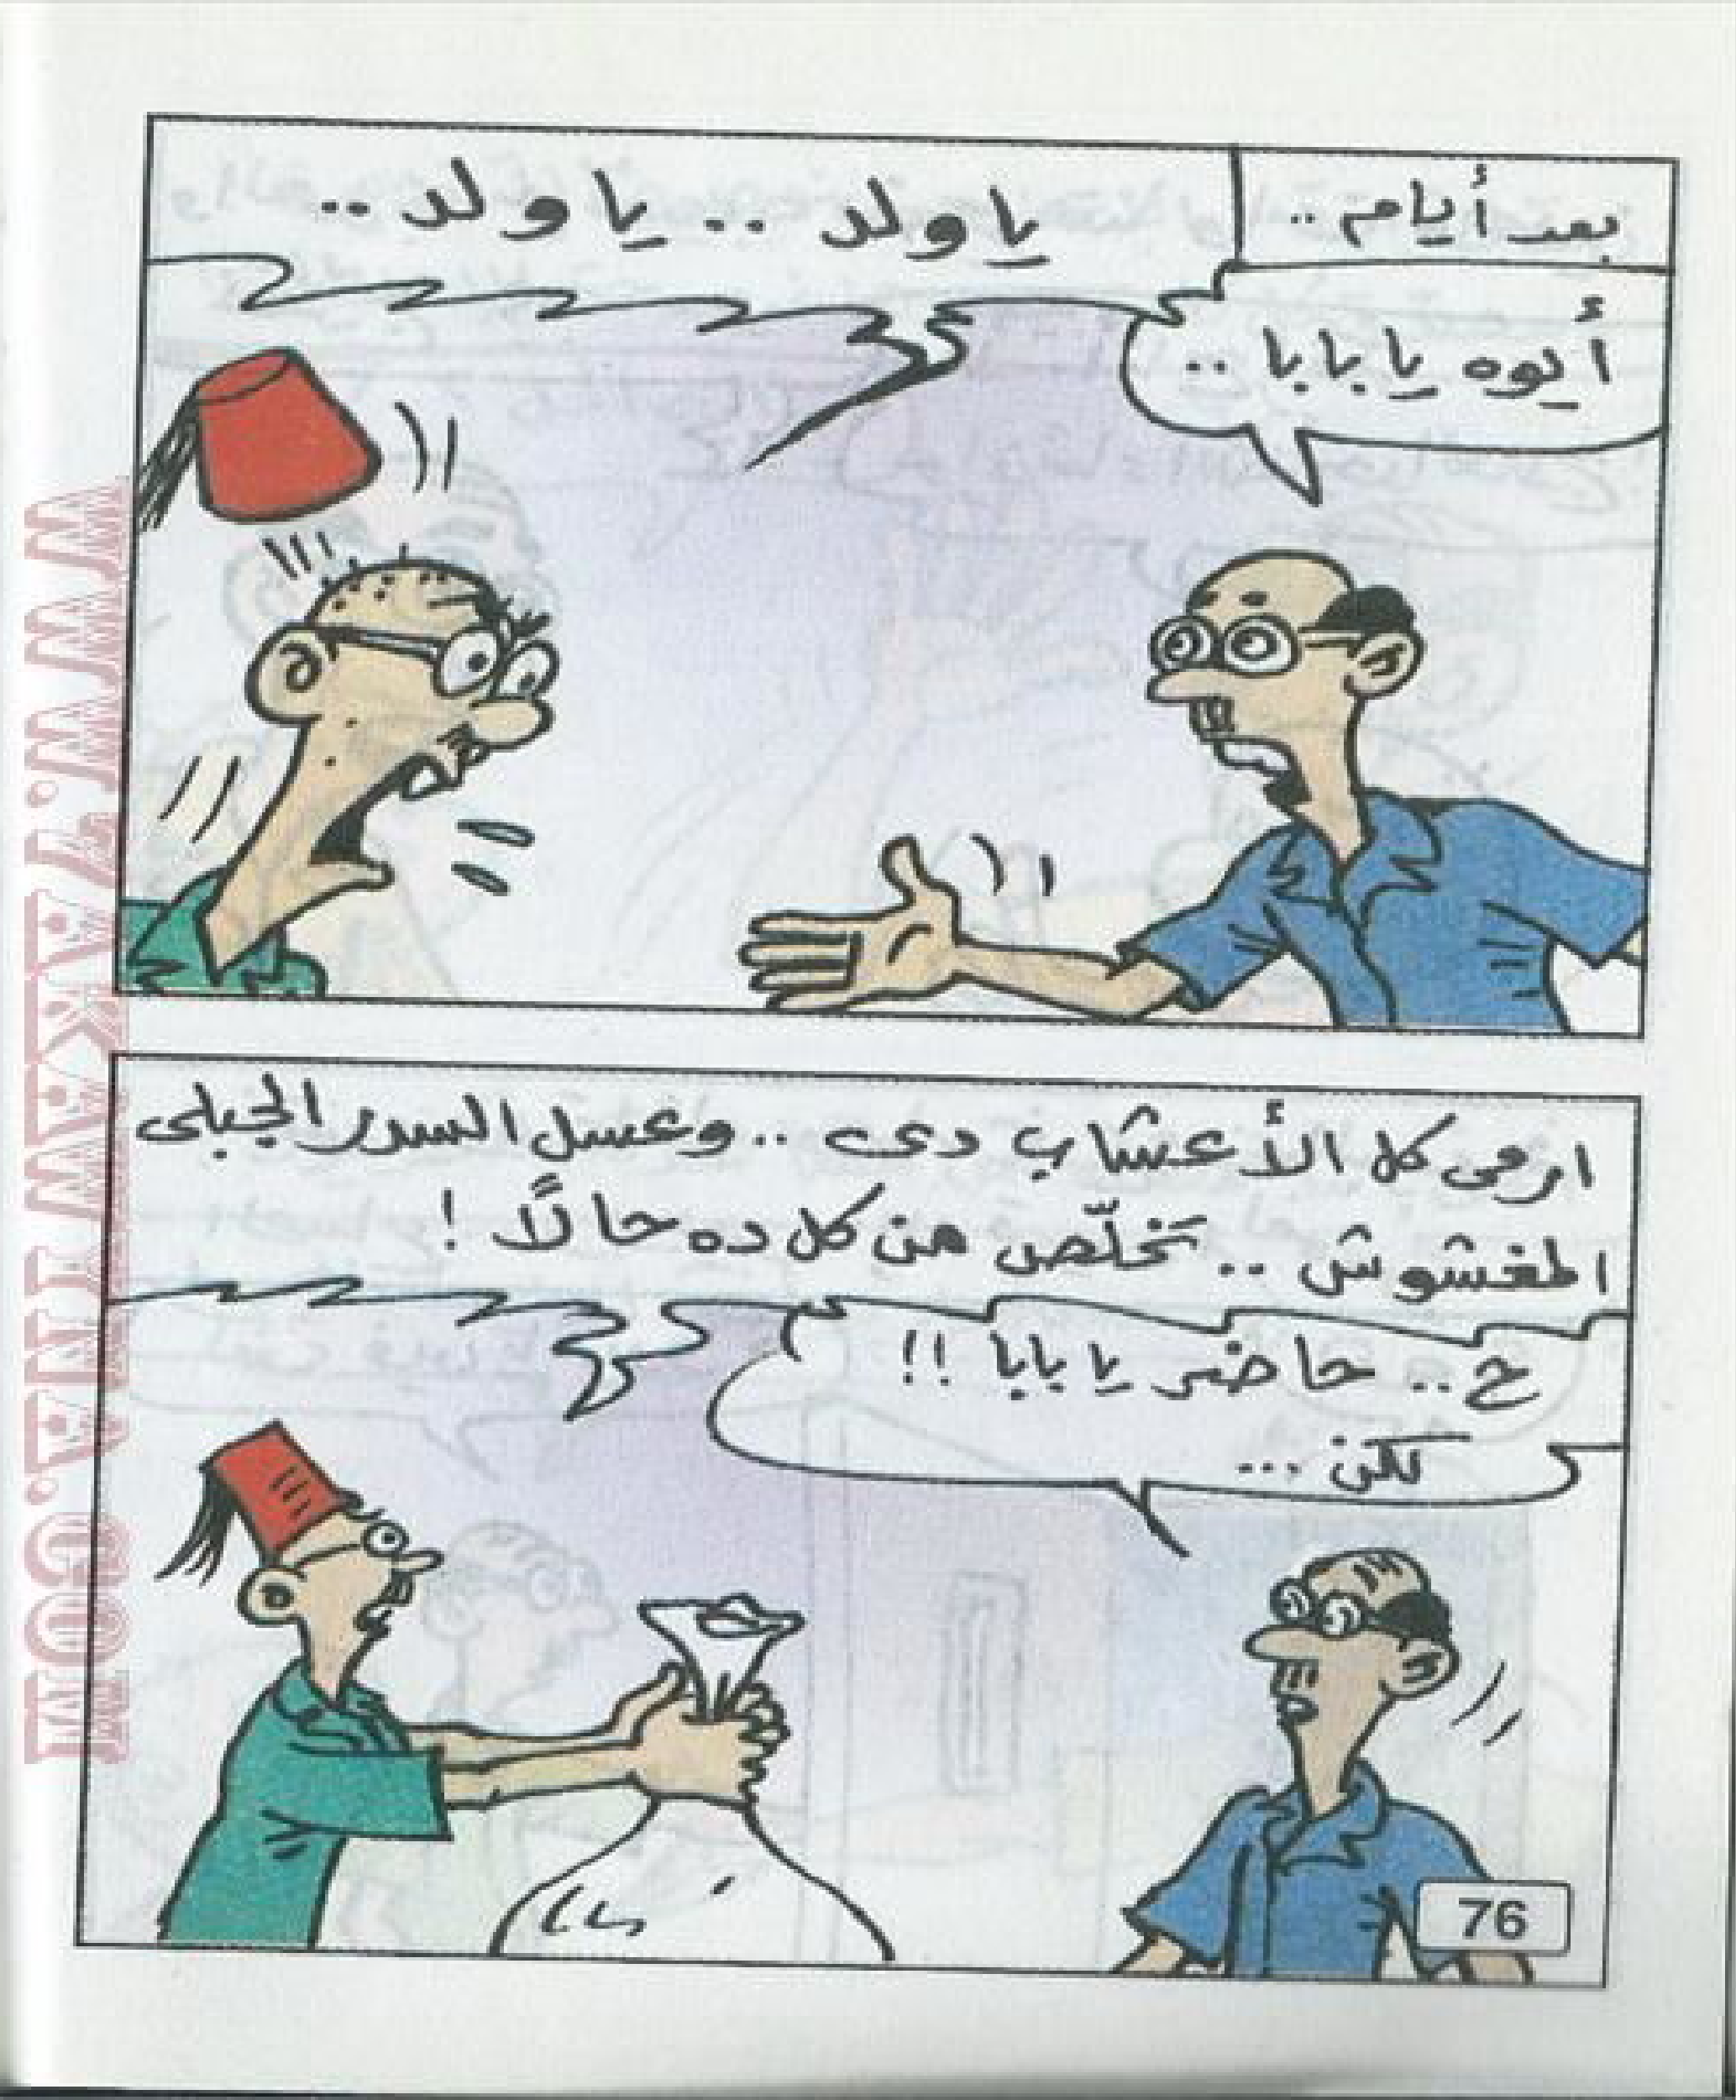 بعد أيام ..
يا ولد .. يا ولد ..
أيوه يا بابا ..
ارمى كل الأعشاب دى .. وعسل السدر الجبلى
المغشوش .. تخلّص من كل ده حالاً !
ح .. حاضر يا بابا !!
لكن ...
76
WWW.7AKAWINA.COM